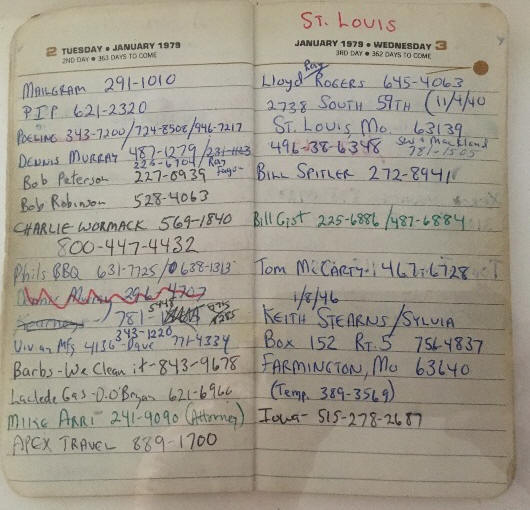 2 TUESDAY • JANUARY 1979
2ND DAY • 363 DAYS TO COME
MAILGRAM 291-1010
PIP 621-2320
POELING 343-7200/724-8508/946-7217
DENNIS MURRAY 487-1279/231-1123
226-6704/Ray
Bob Peterson 227-0939
Bob Robinson 528-4063
CHARLIE WORMACK 569-1840
800-447-4432
Phils BBQ 631-7725/638-1313
781-
343-1220
Vivian Mfg 4136-Dave 771-4334
Barbs-We Clean it-843-9678
Laclede Gas-D.O'Bryan 621-6966
MIKE ARRI 241-9090 (Attorney)
APEX TRAVEL 889-1700
ST. LOUIS
JANUARY 1979 • WEDNESDAY 3
3RD DAY • 362 DAYS TO COME
Ray
Lloyd ROGERS 645-4063
2738 SOUTH 59TH (11/4/40
ST. LOUIS MO. 63139
496-38-6348
781-1505
BILL SPITLER 272-8941
Bill Gist 225-6886/487-6884
TOM McCARTY 467-6728
1/8/46
KEITH STEARNS/SYLVIA
BOX 152 RT. 5 756-4837
FARMINGTON, MO 63640
(Temp. 389-3569)
IOWA- 515-278-2687